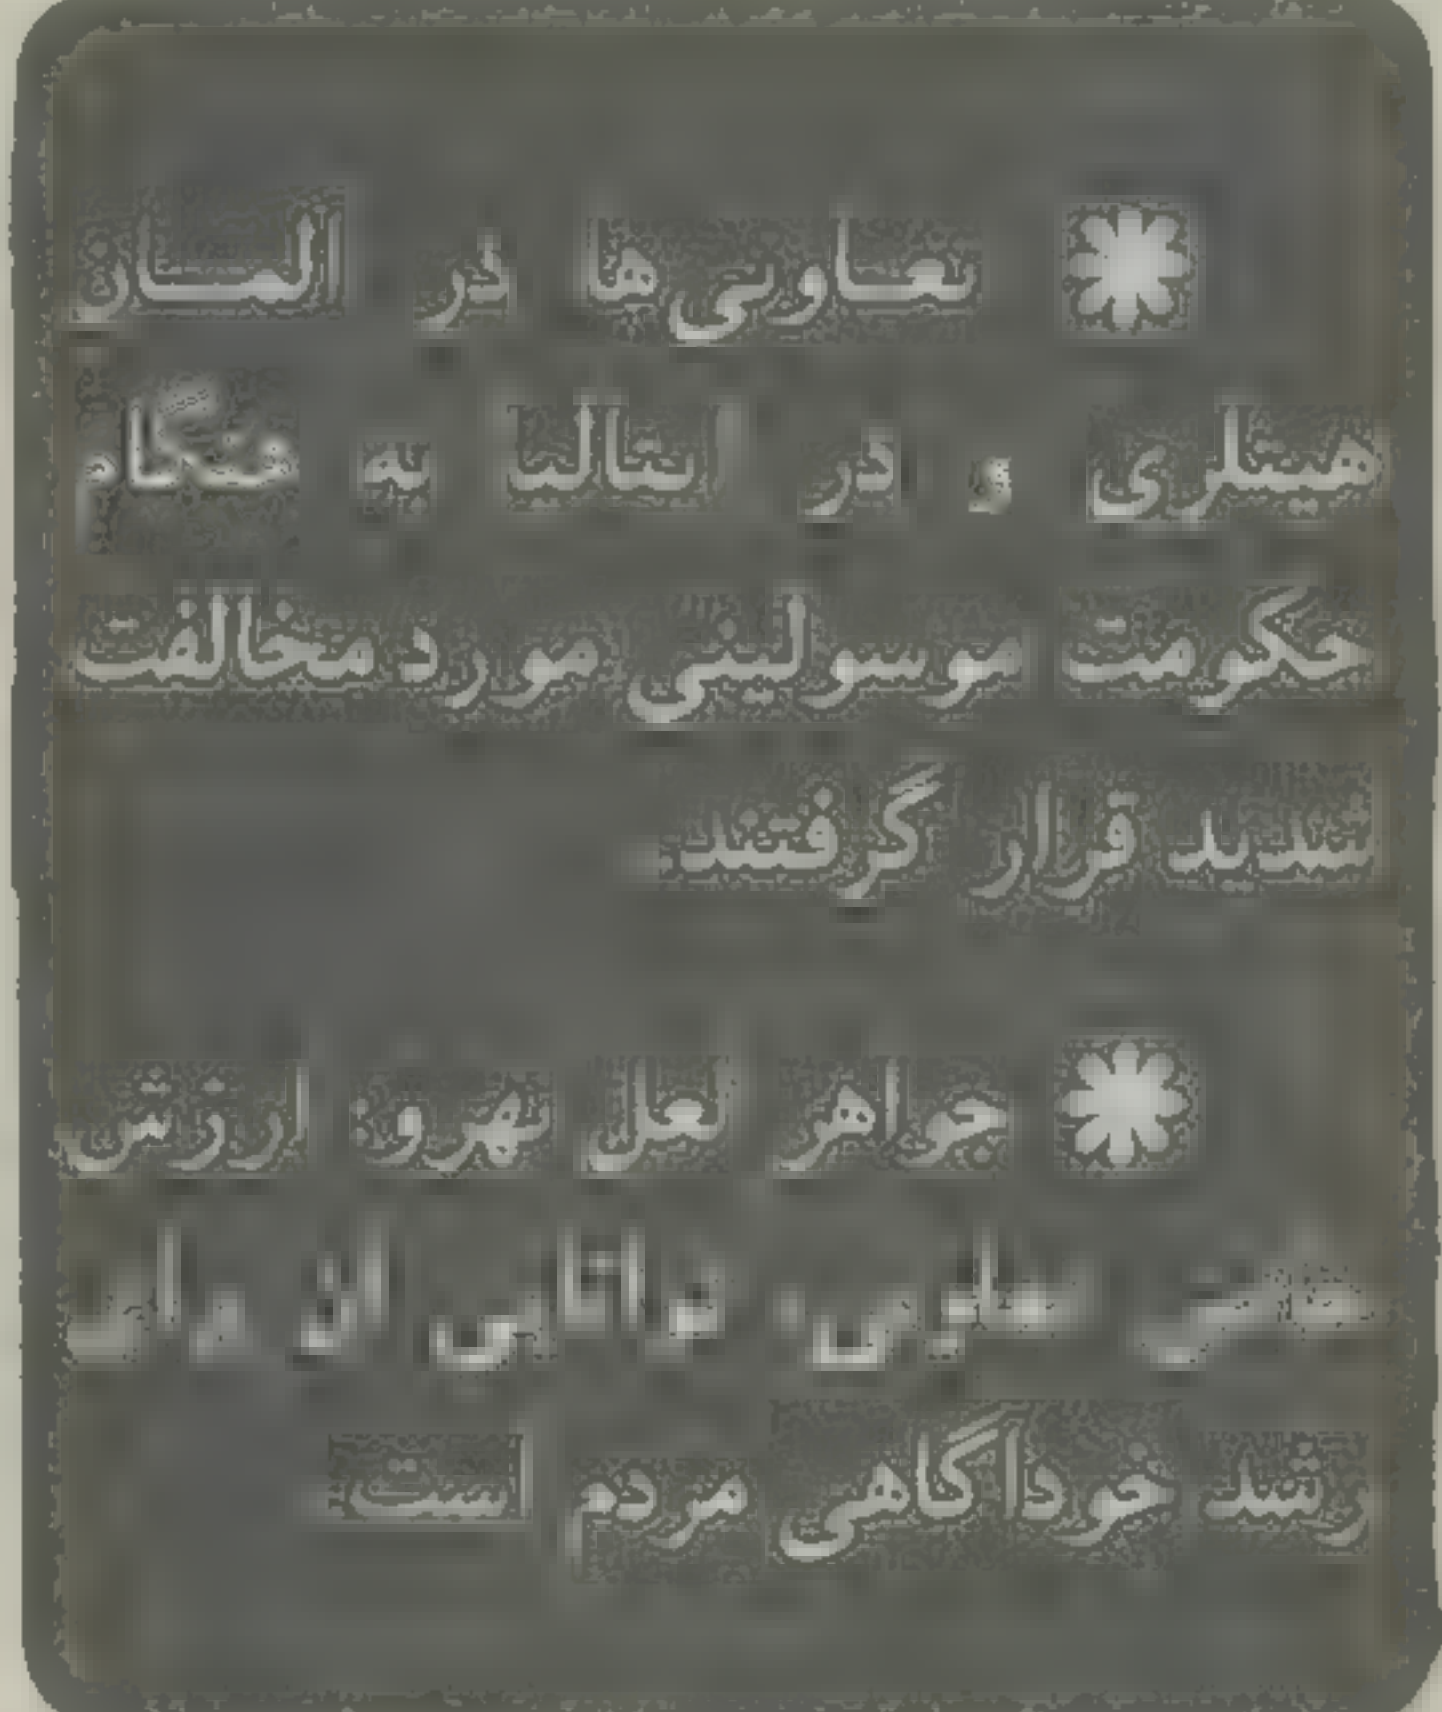 تعاونی‌ها در آلمان
هیتلری و در ایتالیا به هنگام
حکومت موسولینی مورد مخالفت
شدید قرار گرفتند.
جواهر لعل نهرو: ارزش
توانایی از
رشد خودآگاهی مردم است